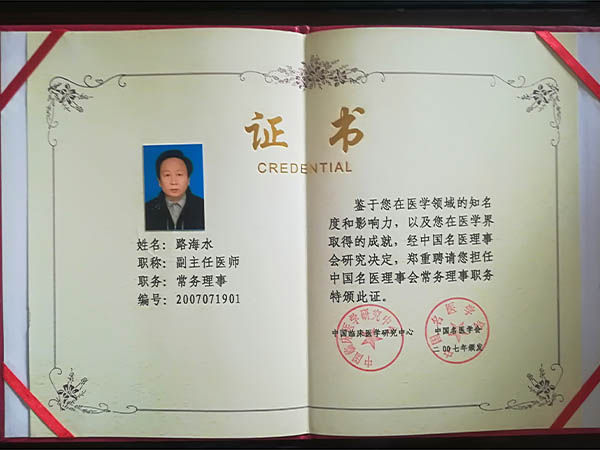 证书
CREDENTIAL
姓名：路海水
职称：副主任医师
职务：常务理事
编号：2007071901
鉴于您在医学领域的知名
度和影响力，以及您在医学界
取得的成就，经中国名医理事
会研究决定，郑重聘请您担任
中国名医理事会常务理事职务
特颁此证。
中国临床医学研究中心
中国名医学会
二00七年颁发